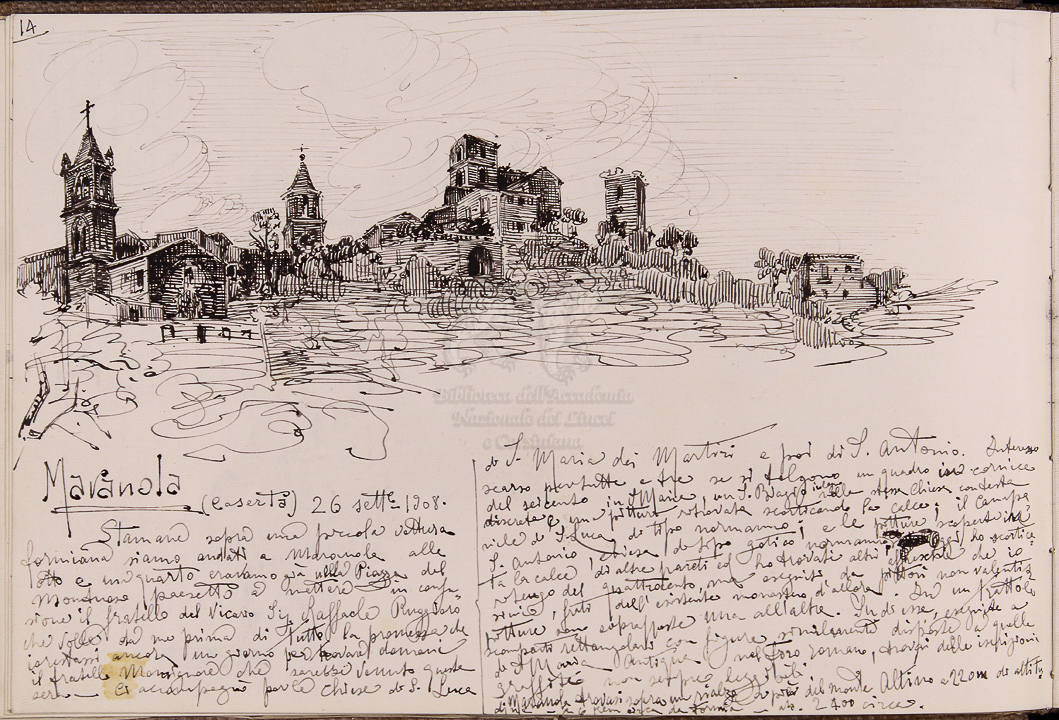 14
Biblioteca dell'Accademia
Nazionale dei Lincei
e Corsiniana
Maranola (Caserta) 26 sett.e 1908.
Stamane sopra una piccola vettura
formiana siamo andati a Maranola alle
otto e un quarto eravamo già nella Piazza del
montuoso paesetto a mettere in
sione il fratello del Vicario Sig. Raffaele Ruggiero
che volle da me prima di tutto la promessa che
restassi ancora un giorno per trovare domani
il fratello Monsignore che sarebbe venuto questa
sera — Ci accompagnò per le chiese di S. Luca
di S. Maria dei Martiri e poi di S. Antonio. Interesse
scarso per tutte e tre se si tolgono un quadro in cornice
del seicento in S. Maria, un S. Biagio nella stessa Chiesa
discreta e una pittura ritrovata scorticando la calce; il campa
nile di S. Luca di tipo normanno; e le pitture scoperte in
S. Antonio, chiesa di tipo gotico normanno
ta la calce di altre pareti ed ho trovati altri affreschi che io
ritengo del quattrocento, ma eseguiti da pittori non valenti
frati dell'esistente monastero d'allora. In un tratto le
pitture son soprapposte una all'altra. Su di esse, eseguite a
scomparti rettangolari con figure similmente disposte a quelle
di S. Maria Antiqua nel foro romano, trovai delle iscrizioni
graffite non sempre leggibili.
Maranola trovasi sopra un rialzo a piè del monte Altino a 220 m di altit
da Formia — 2400 circa.